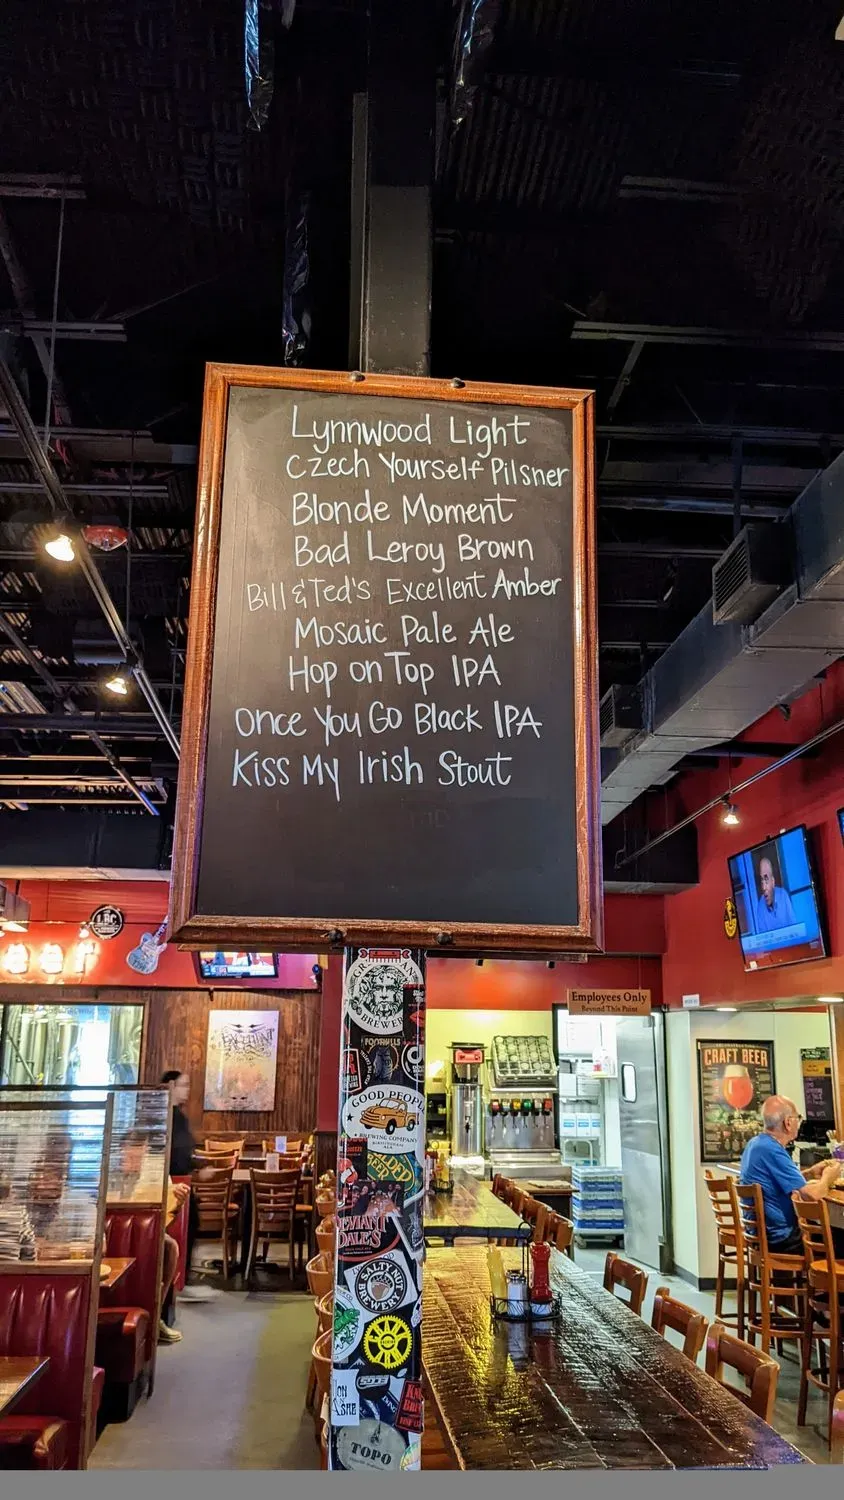 Lynnwood Light
Czech Yourself Pilsner
Blonde Moment
Bad Leroy Brown
Bill & Ted's Excellent Amber
Mosaic Pale Ale
Hop on Top IPA
Once You Go Black IPA
Kiss My Irish Stout
LBC
Employees Only
Beyond This Point
CRAFT BEER
BREWERY
FOOTHILLS
GOOD PEOPLE
BREWING COMPANY
DEVIANT
DALE'S
SALTY NUT
BREWERY
TOPO